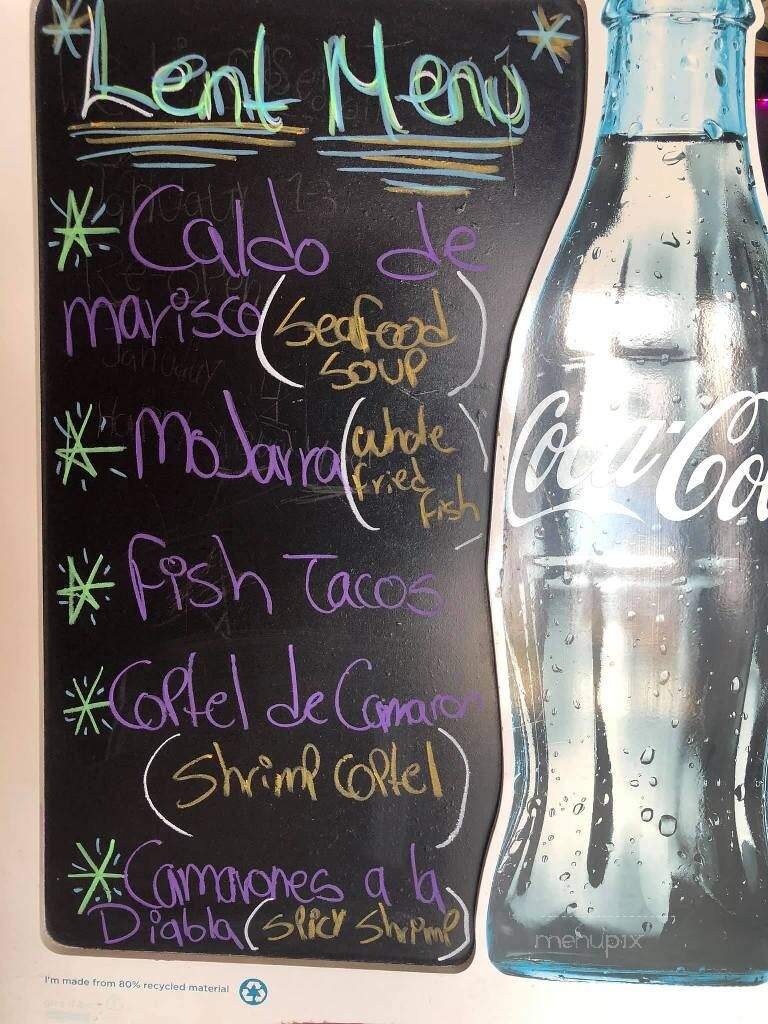 Lent Menu
Caldo de
marisco (seafood
soup)
MoJarra (whole
fried
fish)
Fish Tacos
Coptel de Camaron
(shrimp coptel)
Camarones a la
Diabla (spicy shrimp)
Coca-Co
menupix
I'm made from 80% recycled material